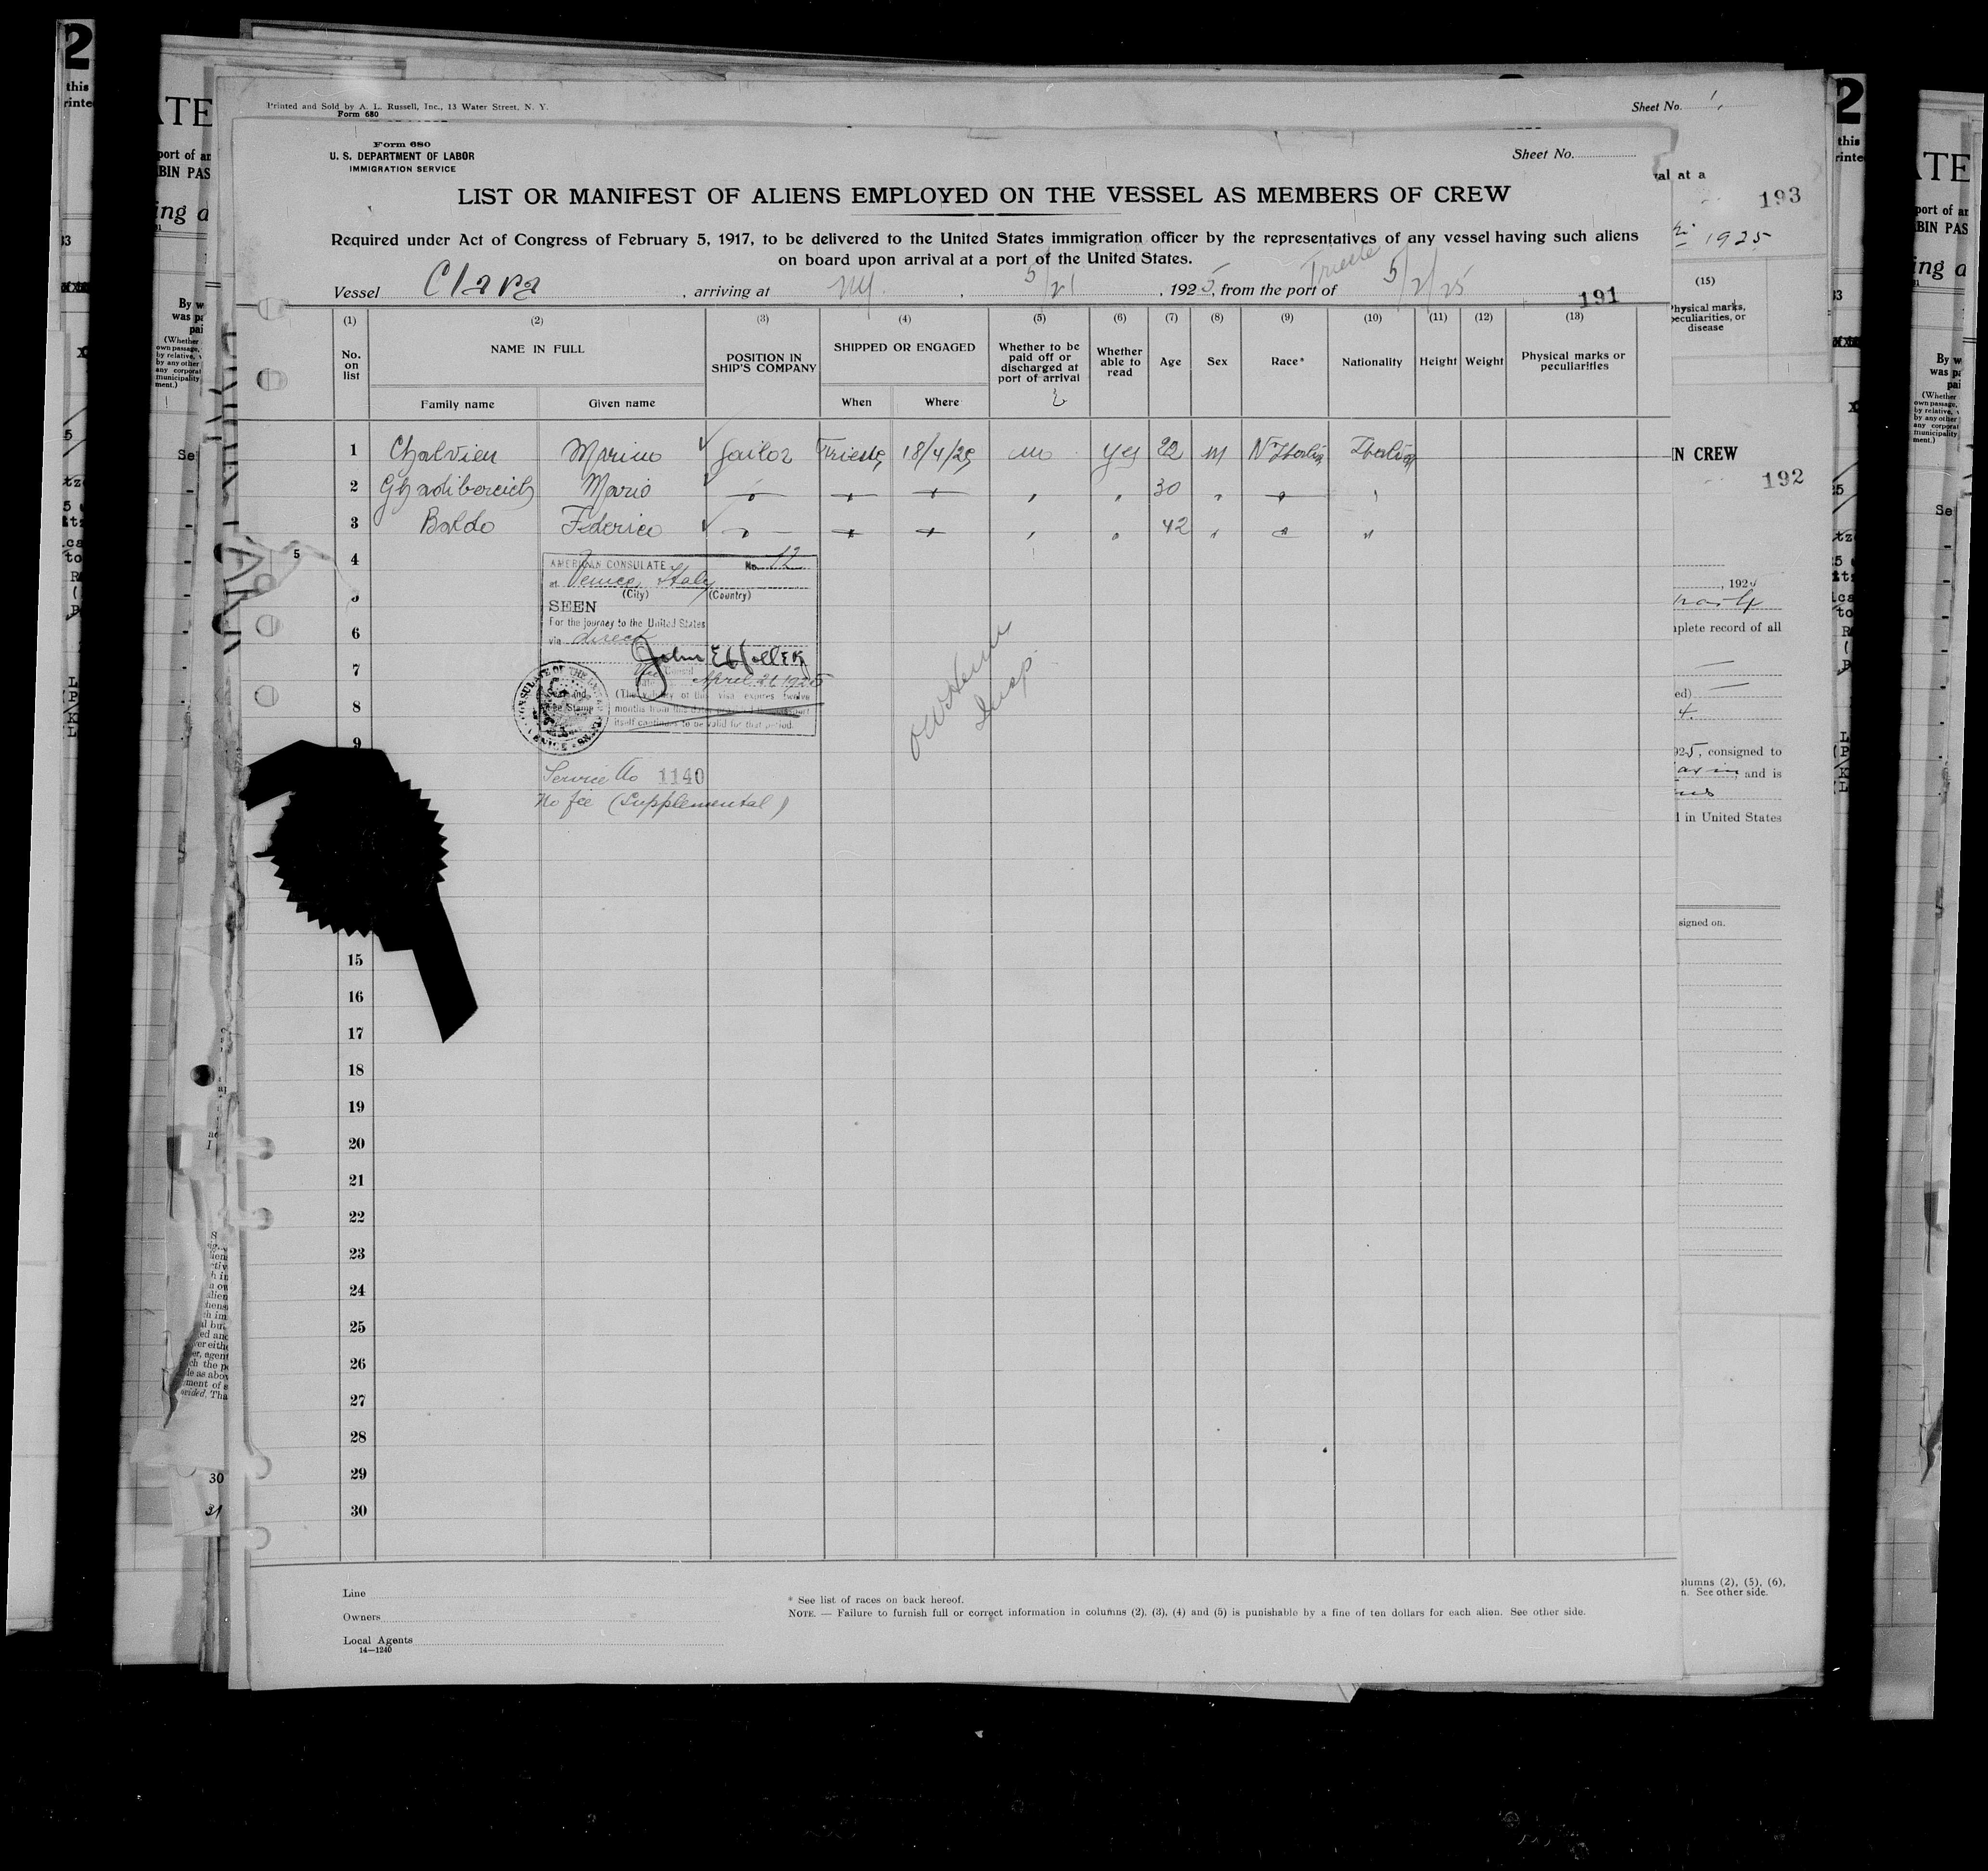 Printed and Sold by A. L. Russell, Inc., 13 Water Street, N. Y.
Form 680
Sheet No. 1.
Form 680
U. S. DEPARTMENT OF LABOR
IMMIGRATION SERVICE
Sheet No.
LIST OR MANIFEST OF ALIENS EMPLOYED ON THE VESSEL AS MEMBERS OF CREW
val at a
193
1925
Required under Act of Congress of February 5, 1917, to be delivered to the United States immigration officer by the representatives of any vessel having such aliens
on board upon arrival at a port of the United States.
Vessel Clara, arriving at NY, 5/21, 1925, from the port of Trieste 5/2/25
191
(1) (2) (3) (4) (5) (6) (7) (8) (9) (10) (11) (12) (13)
No. on list NAME IN FULL POSITION IN SHIP'S COMPANY SHIPPED OR ENGAGED Whether to be paid off or discharged at port of arrival Whether able to read Age Sex Race* Nationality Height Weight Physical marks or peculiarities
Family name Given name When Where
(15)
Physical marks, peculiarities, or disease
1 Chalvien Marino Sailor Trieste 18/4/25 no yes 22 m N Italian Italian
2 Ghadibercich Mario " " " " " 30 " " "
3 Baldo Federico " " " " " 42 " " "
IN CREW
192
4
5
6
7
8
9
AMERICAN CONSULATE No. 12
at Venice, Italy
(City) (Country)
SEEN
For the journey to the United States
via direct
April 21 1925
(The validity of this visa expires twelve
months from this date
itself continues to be valid for that period.
Insp.
Service No 1140
No fee (Supplemental)
, 192
mplete record of all
925, consigned to
and is
d in United States
signed on.
15
16
17
18
19
20
21
22
23
24
25
26
27
28
29
30
Line
Owners
Local Agents
14—1240
* See list of races on back hereof.
NOTE. — Failure to furnish full or correct information in columns (2), (3), (4) and (5) is punishable by a fine of ten dollars for each alien. See other side.
olumns (2), (5), (6),
n. See other side.